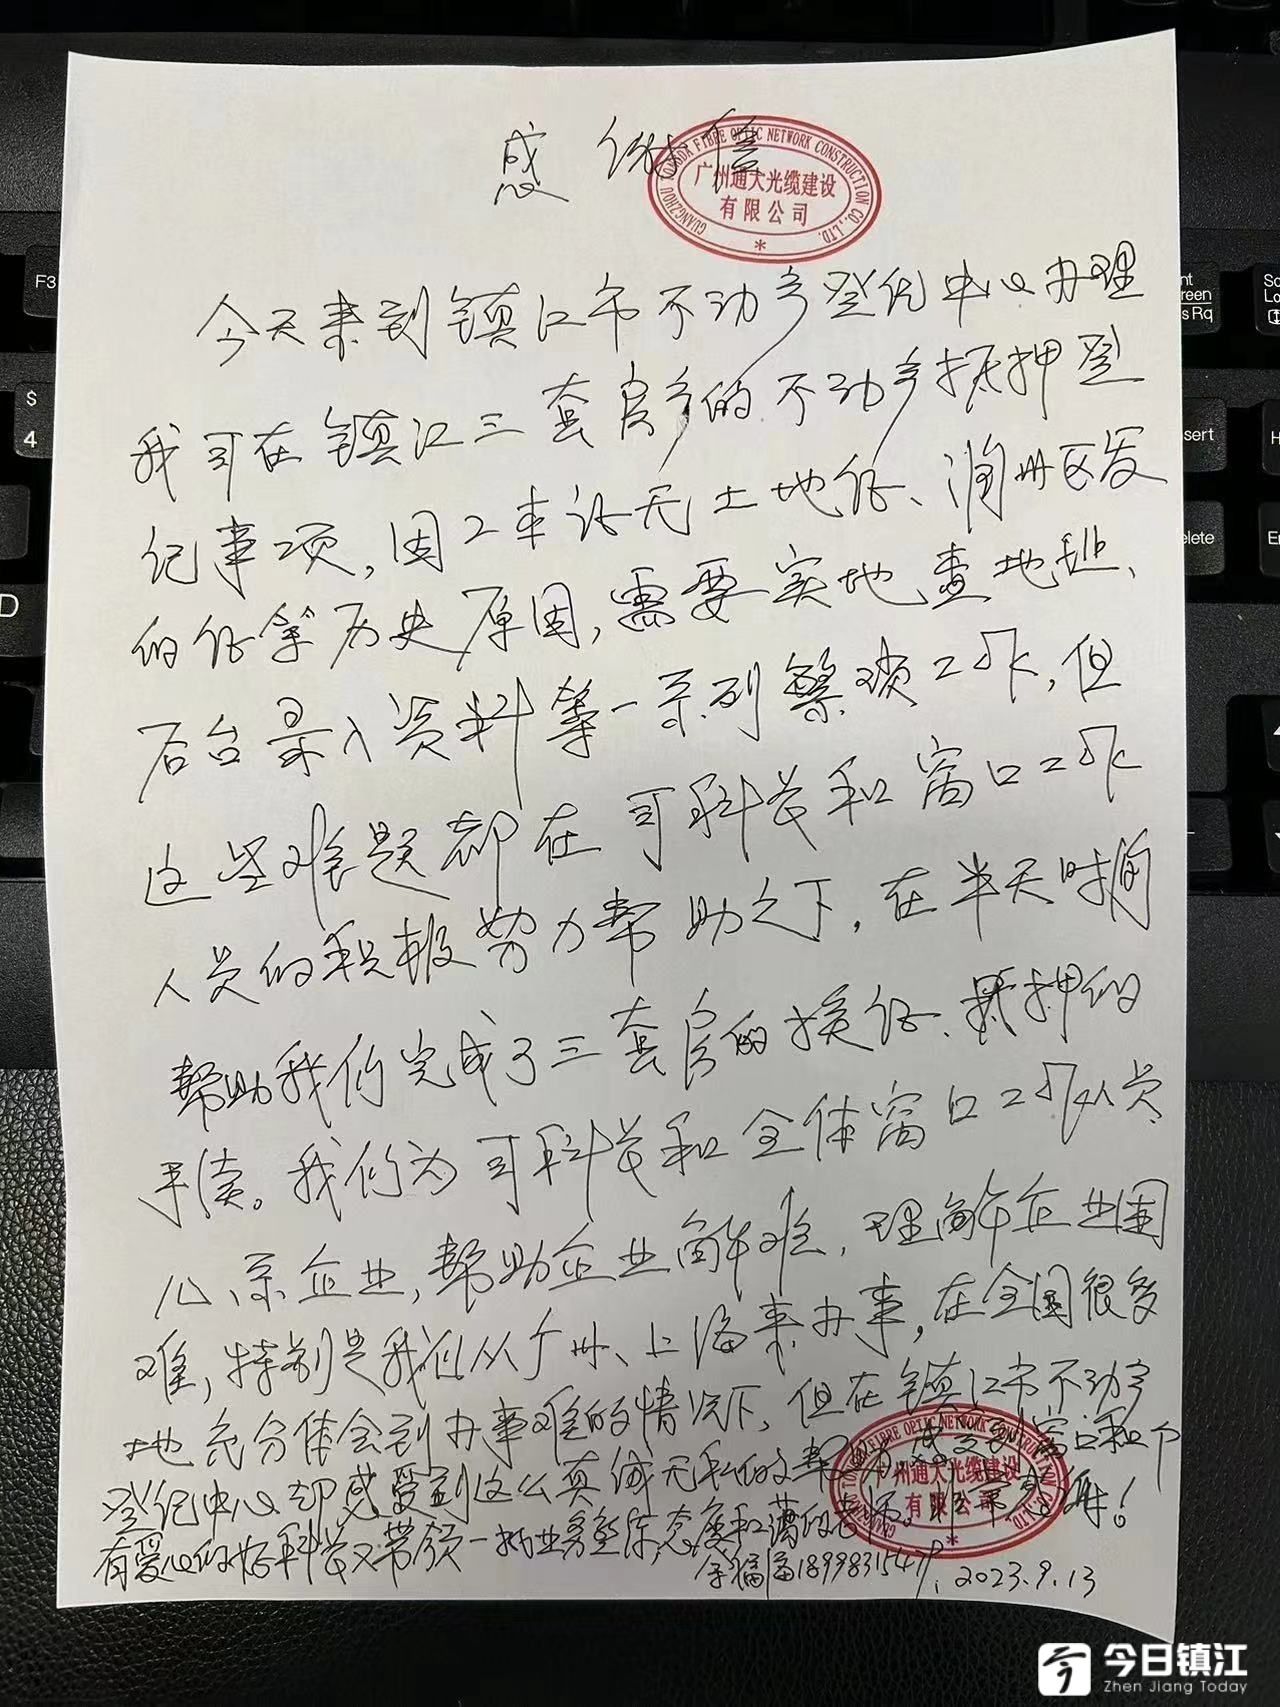 感谢信
GUANGZHOU TONGDA FIBRE OPTIC NETWORK CONSTRUCTION CO.,LTD.
广州通大光缆建设
有限公司
今天来到镇江市不动产登记中心办理
我司在镇江三套房产的不动产抵押登
记事项,因工本证无土地证、润州区发
的证等历史原因,需要实地查地址、
后台录入资料等一系列繁琐工作,但
这些难题都在司科长和窗口工作
人员的积极努力帮助之下,在半天时间
帮助我们完成了三套房的换证、抵押的
手续。我们为司科长和全体窗口工作人员
心系企业,帮助企业解难,理解企业困
难,特别是我们从广州、上海来办事,在全国很多
地充分体会到办事难的情况下,但在镇江市不动产
登记中心却感受到这么真诚无私的帮助,感受到窗口和个
有爱心的好科长又带领一批业务熟练,态度和蔼的老师。非常感谢!
2023.9.13
F3
$
4
D
Delete
今日镇江
Zhen Jiang Today